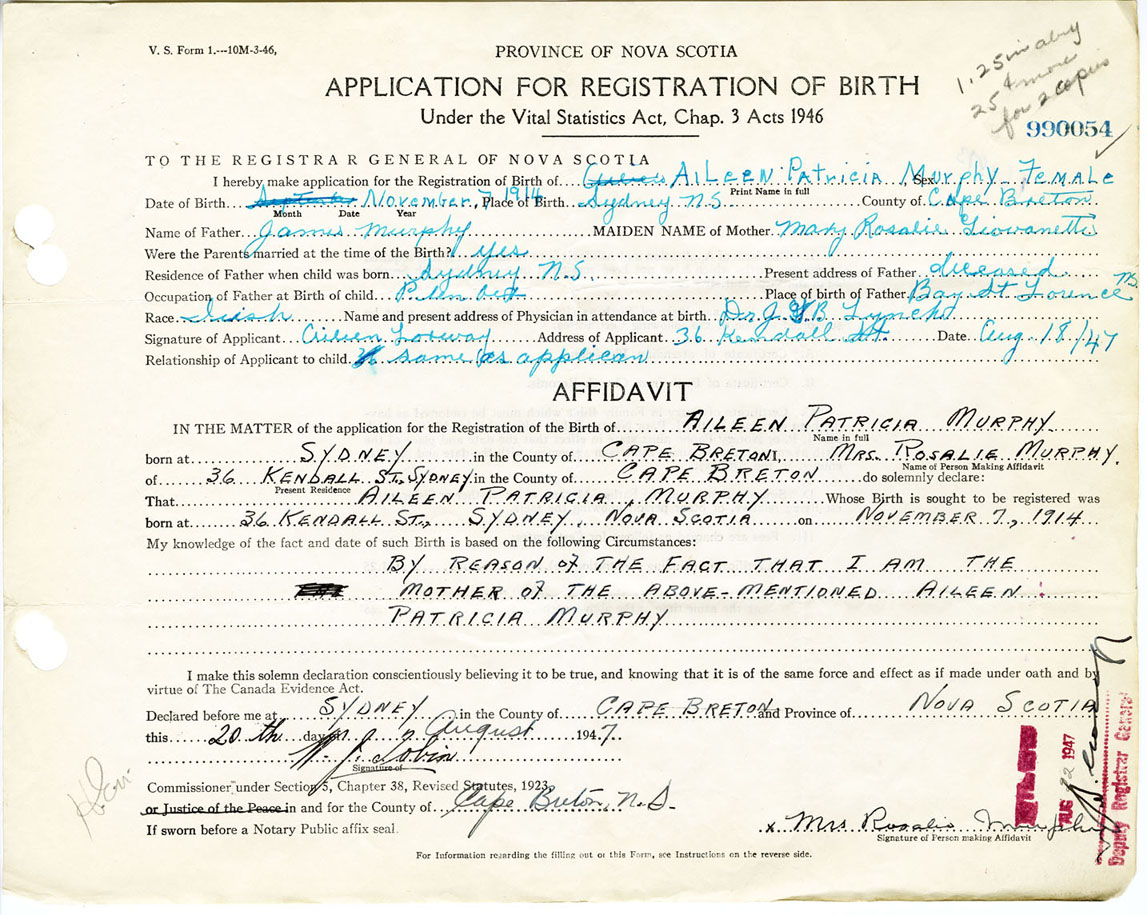 V. S. Form 1.—10M-3-46,
PROVINCE OF NOVA SCOTIA
1.25 in
25 ¢ more
for 2 copies
APPLICATION FOR REGISTRATION OF BIRTH
Under the Vital Statistics Act, Chap. 3 Acts 1946
990054
TO THE REGISTRAR GENERAL OF NOVA SCOTIA
I hereby make application for the Registration of Birth of AILEEN PATRICIA Murphy Sex FEMALE
Print Name in full
Date of Birth November, 7, 1914 Place of Birth Sydney N.S. County of Cape Breton
Month Date Year
Name of Father James Murphy MAIDEN NAME of Mother Mary Rosalie Giovanetti
Were the Parents married at the time of the Birth? Yes
Residence of Father when child was born Sydney N.S. Present address of Father diceased
Occupation of Father at Birth of child Place of birth of Father Bay St Lorence N.S.
Race Irish Name and present address of Physician in attendance at birth Dr. J. B Lynch
Signature of Applicant Aileen Lorway Address of Applicant 36 Kendall St. Date Aug. 18/47
Relationship of Applicant to child same as applican
AFFIDAVIT
IN THE MATTER of the application for the Registration of the Birth of AILEEN PATRICIA MURPHY
Name in full
born at SYDNEY in the County of CAPE BRETON I, MRS. ROSALIE MURPHY.
Name of Person Making Affidavit
of 36 KENDALL ST. SYDNEY in the County of CAPE BRETON do solemnly declare:
Present Residence
That AILEEN PATRICIA, MURPHY Whose Birth is sought to be registered was
born at 36 KENDALL ST., SYDNEY, NOVA SCOTIA on NOVEMBER 7, 1914
My knowledge of the fact and date of such Birth is based on the following Circumstances:
BY REASON of THE FACT THAT I AM THE
MOTHER of THE ABOVE-MENTIONED AILEEN
PATRICIA MURPHY
I make this solemn declaration conscientiously believing it to be true, and knowing that it is of the same force and effect as if made under oath and by
virtue of The Canada Evidence Act.
Declared before me at SYDNEY in the County of CAPE BRETON and Province of NOVA SCOTIA
this 20th day of August 1947.
Signature of
Commissioner under Section 5, Chapter 38, Revised Statutes, 1923,
or Justice of the Peace in and for the County of Cape Breton, N.S.
If sworn before a Notary Public affix seal.
x Mrs Rosalie Murphy
Signature of Person making Affidavit
FILED
AUG 22 1947
Deputy Registrar General
For Information regarding the filling out of this Form, see Instructions on the reverse side.